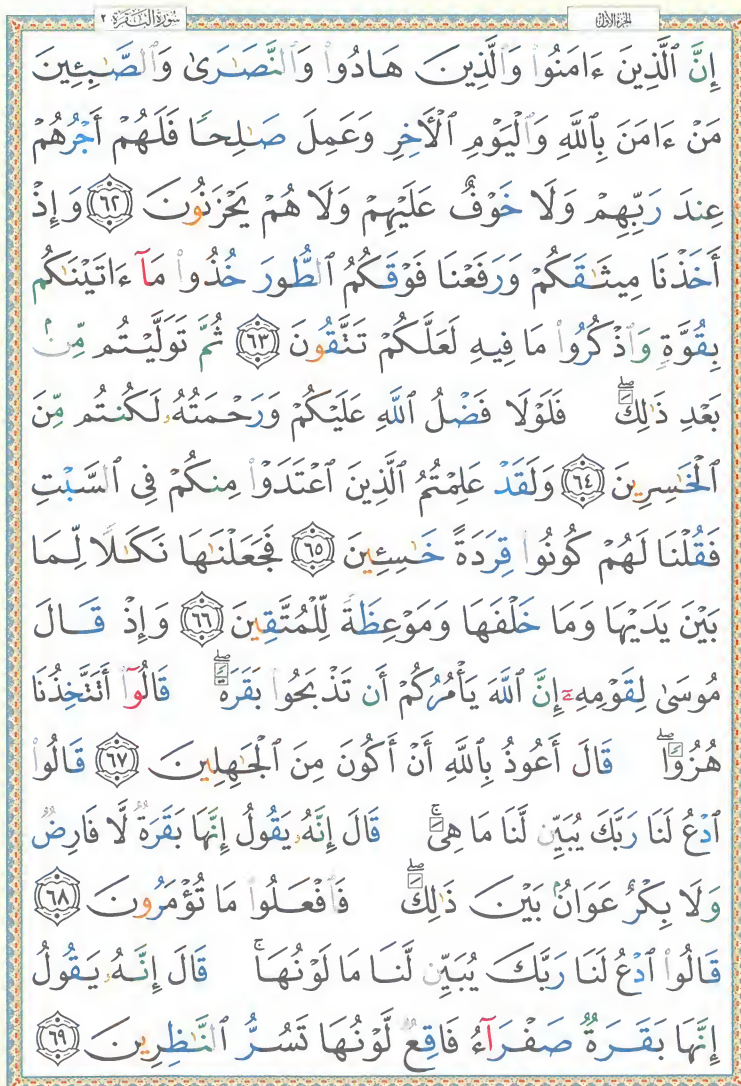 سُورَةُ البَقَرَةِ ٢
الجُزْءُ الأَوَّلُ
إِنَّ ٱلَّذِينَ ءَامَنُوا۟ وَٱلَّذِينَ هَادُوا۟ وَٱلنَّصَـٰرَىٰ وَٱلصَّـٰبِـِٔينَ
مَنْ ءَامَنَ بِٱللَّهِ وَٱلْيَوْمِ ٱلْـَٔاخِرِ وَعَمِلَ صَـٰلِحًا فَلَهُمْ أَجْرُهُمْ
عِندَ رَبِّهِمْ وَلَا خَوْفٌ عَلَيْهِمْ وَلَا هُمْ يَحْزَنُونَ ٦٢ وَإِذْ
أَخَذْنَا مِيثَـٰقَكُمْ وَرَفَعْنَا فَوْقَكُمُ ٱلطُّورَ خُذُوا۟ مَآ ءَاتَيْنَـٰكُم
بِقُوَّةٍ وَٱذْكُرُوا۟ مَا فِيهِ لَعَلَّكُمْ تَتَّقُونَ ٦٣ ثُمَّ تَوَلَّيْتُم مِّنۢ
بَعْدِ ذَٰلِكَ ۖ فَلَوْلَا فَضْلُ ٱللَّهِ عَلَيْكُمْ وَرَحْمَتُهُۥ لَكُنتُم مِّنَ
ٱلْخَـٰسِرِينَ ٦٤ وَلَقَدْ عَلِمْتُمُ ٱلَّذِينَ ٱعْتَدَوْا۟ مِنكُمْ فِى ٱلسَّبْتِ
فَقُلْنَا لَهُمْ كُونُوا۟ قِرَدَةً خَـٰسِـِٔينَ ٦٥ فَجَعَلْنَـٰهَا نَكَـٰلًا لِّمَا
بَيْنَ يَدَيْهَا وَمَا خَلْفَهَا وَمَوْعِظَةً لِّلْمُتَّقِينَ ٦٦ وَإِذْ قَالَ
مُوسَىٰ لِقَوْمِهِۦٓ إِنَّ ٱللَّهَ يَأْمُرُكُمْ أَن تَذْبَحُوا۟ بَقَرَةً ۖ قَالُوٓا۟ أَتَتَّخِذُنَا
هُزُوًا ۖ قَالَ أَعُوذُ بِٱللَّهِ أَنْ أَكُونَ مِنَ ٱلْجَـٰهِلِينَ ٦٧ قَالُوا۟
ٱدْعُ لَنَا رَبَّكَ يُبَيِّن لَّنَا مَا هِىَ ۚ قَالَ إِنَّهُۥ يَقُولُ إِنَّهَا بَقَرَةٌ لَّا فَارِضٌ
وَلَا بِكْرٌ عَوَانٌۢ بَيْنَ ذَٰلِكَ ۖ فَٱفْعَلُوا۟ مَا تُؤْمَرُونَ ٦٨
قَالُوا۟ ٱدْعُ لَنَا رَبَّكَ يُبَيِّن لَّنَا مَا لَوْنُهَا ۚ قَالَ إِنَّهُۥ يَقُولُ
إِنَّهَا بَقَرَةٌ صَفْرَآءُ فَاقِعٌ لَّوْنُهَا تَسُرُّ ٱلنَّـٰظِرِينَ ٦٩